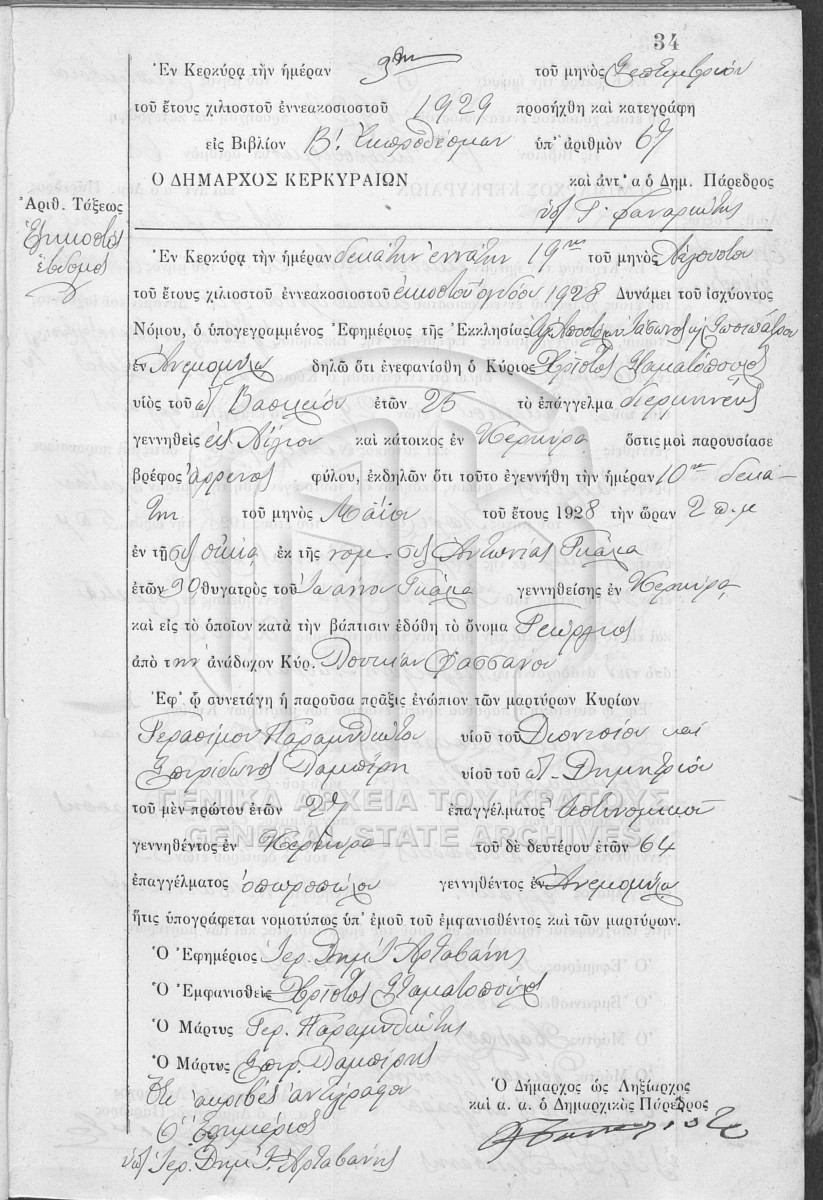 34
Ἐν Κερκύρᾳ τὴν ἡμέραν 3ην τοῦ μηνὸς Σεπτεμβρίου
τοῦ ἔτους χιλιοστοῦ ἐννεακοσιοστοῦ 1929 προσήχθη καὶ κατεγράφη
εἰς Βιβλίον Β! Ἐκπροθέσμων ὑπ' ἀριθμὸν 67
Ο ΔΗΜΑΡΧΟΣ ΚΕΡΚΥΡΑΙΩΝ καὶ ἀντ' α ὁ Δημ. Πάρεδρος
Γ. Φαναριώτης
Ἀριθ. Τάξεως
Εἰκοστὸς
ἕβδομος
Ἐν Κερκύρᾳ τὴν ἡμέραν δεκάτην ἐννάτην 19ην τοῦ μηνὸς Αὐγούστου
τοῦ ἔτους χιλιοστοῦ ἐννεακοσιοστοῦ εἰκοστοῦ ὀγδόου 1928 Δυνάμει τοῦ ἰσχύοντος
Νόμου, ὁ ὑπογεγραμμένος Ἐφημέριος τῆς Ἐκκλησίας Ἁγ. Ἀποστόλων Ἰάσωνος κ Σωσιπάτρου
ἐν Ἀνεμομύλῳ δηλῶ ὅτι ἐνεφανίσθη ὁ Κύριος Χρῖστος Σταματόπουλος
υἱὸς τοῦ Βασιλείου ἐτῶν 25 τὸ ἐπάγγελμα διερμηνεύς
γεννηθεὶς εἰς Αἴγιον καὶ κάτοικος ἐν Κερκύρᾳ ὅστις μοὶ παρουσίασε
βρέφος ἄρρενος φύλου, ἐκδηλῶν ὅτι τοῦτο ἐγεννήθη τὴν ἡμέραν 10ην δεκά-
την τοῦ μηνὸς Μαΐου τοῦ ἔτους 1928 τὴν ὥραν 2 π.μ
ἐν τῇ οἰκίᾳ ἐκ τῆς νομ. Ἀντωνίας Γκάλα
ἐτῶν 30 θυγατρὸς τοῦ Ἰωάννου Γκάλα γεννηθείσης ἐν Κερκύρᾳ
καὶ εἰς τὸ ὁποῖον κατὰ τὴν βάπτισιν ἐδόθη τὸ ὄνομα Γεώργιος
ἀπὸ τὴν ἀνάδοχον Κύρ. Λουκίαν Φασσάνου
Ἐφ' ᾧ συνετάγη ἡ παροῦσα πρᾶξις ἐνώπιον τῶν μαρτύρων Κυρίων
Γερασίμου Παραμυθιώτου υἱοῦ τοῦ Διονυσίου καὶ
Σπυρίδωνος Λαμπίρη υἱοῦ τοῦ Δημητρίου
τοῦ μὲν πρώτου ἐτῶν 27 ἐπαγγέλματος ἀστυνομικοῦ
ΓΕΝΙΚΑ ΑΡΧΕΙΑ ΤΟΥ ΚΡΑΤΟΥΣ
GENERAL STATE ARCHIVES
γεννηθέντος ἐν Κερκύρᾳ τοῦ δὲ δευτέρου ἐτῶν 64
ἐπαγγέλματος ὀπωροπώλου γεννηθέντος ἐν Ἀνεμομύλῳ
ἥτις ὑπογράφεται νομοτύπως ὑπ' ἐμοῦ τοῦ ἐμφανισθέντος καὶ τῶν μαρτύρων.
Ὁ Ἐφημέριος Ἱερ. Δημ. Ἀρταβάνης
Ὁ Ἐμφανισθεὶς Χρῖστος Σταματόπουλος
Ὁ Μάρτυς Γερ. Παραμυθιώτης
Ὁ Μάρτυς Σπυρ. Λαμπίρης
ἀκριβὲς ἀντίγραφον
Ὁ Ἐφημέριος
Ἱερ. Δημ. Ἀρταβάνης
Ὁ Δήμαρχος ὡς Ληξίαρχος
καὶ α. α. ὁ Δημαρχικὸς Πάρεδρος